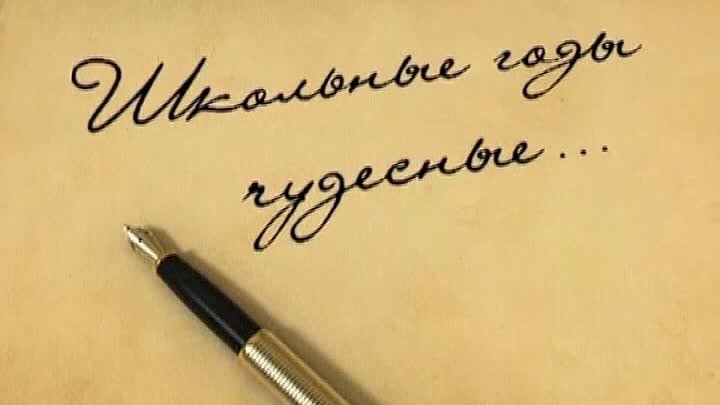 Школьные годы
чудесные...